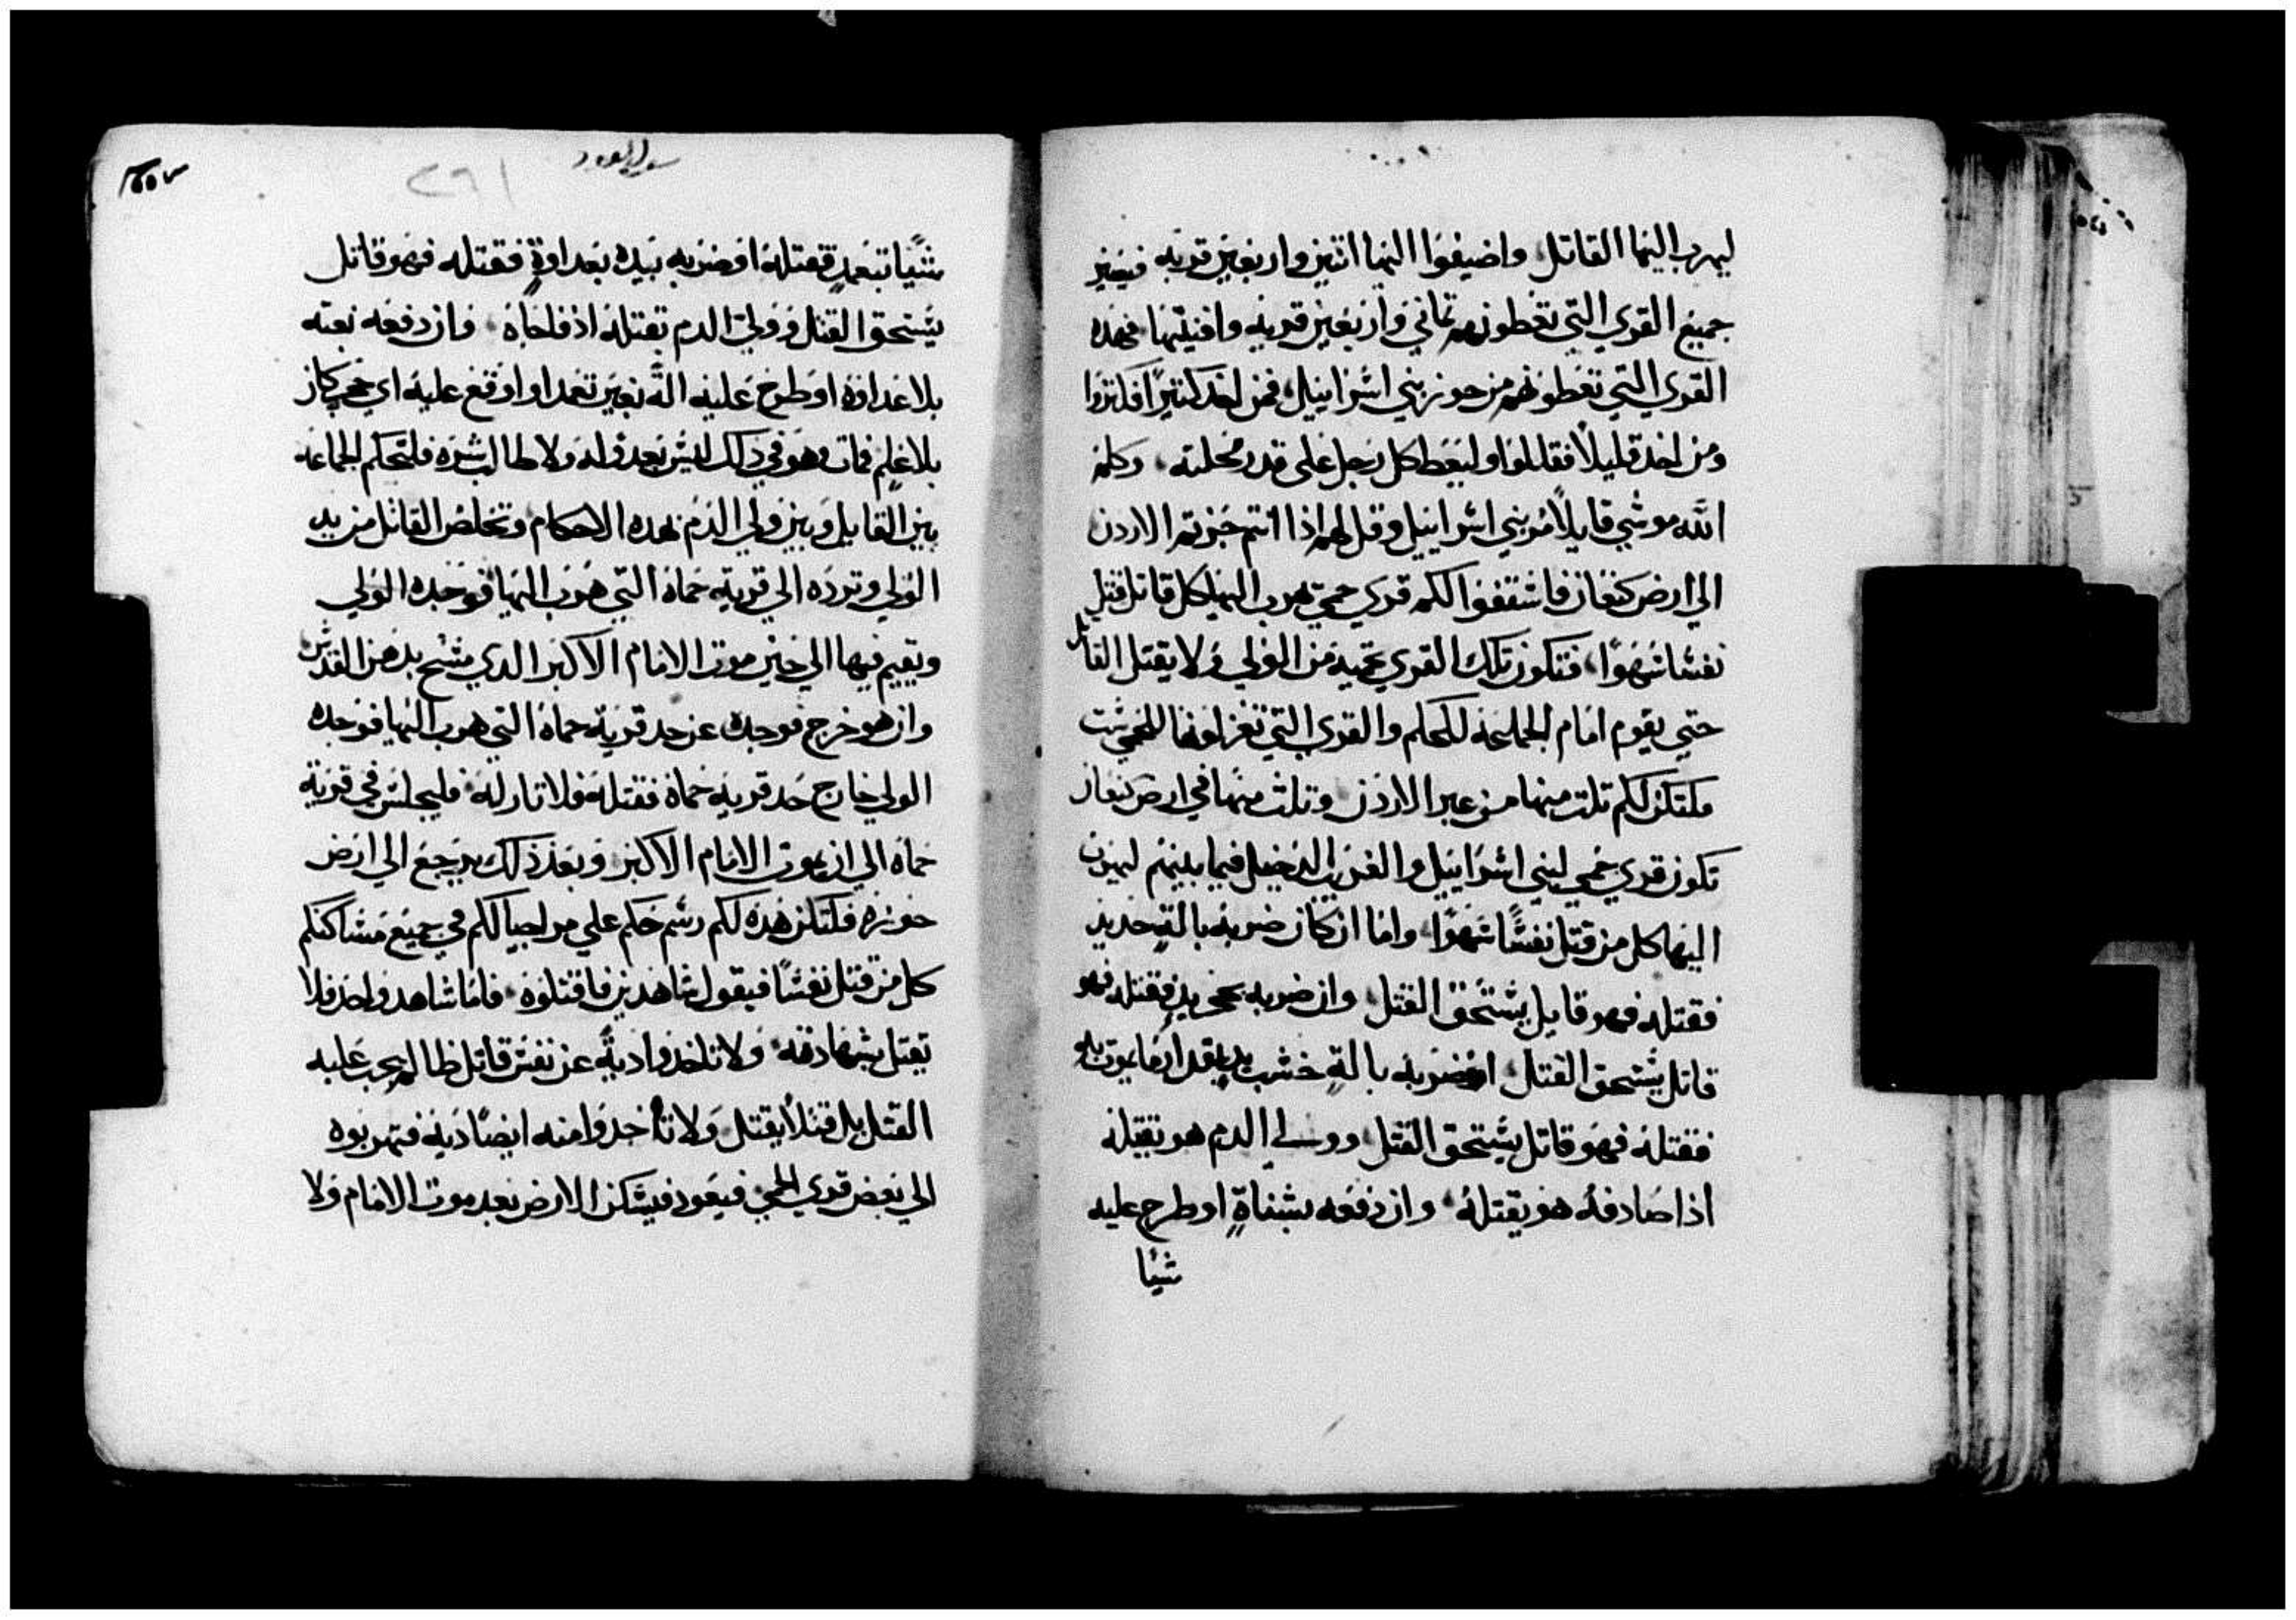 ليهرب اليها القاتل واضيفوا اليها اثنين واربعين قريه فيصير
جميع القري التي تعطونهم تماني واربعين قريه وافنيتها فهده
القري التي تعطونهم من حوز بني اسرائيل فمن اخد كتيرًا فكتروا
ومن اخد قليلًا فقللوا وليعط كل رجل على قدر نحلته وكلم
الله موسي قايلًا مر بني اسرائيل وقل لهم اذا انتم جزتم الاردن
الي ارض كنعان فاشقفوا لكم قري حمي يهرب اليها كل قاتل قتل
نفسًا سهوًا فتكون تلك القري محميه من الولي ولا يقتل القاتل
حتي يقوم امام الجماعه للحكم والقري التي تعزلونها للحمي ست
فلتكن لكم تلت منها من عبر الاردن وتلت منها في ارض كنعان
تكون قري حمي لبني اسرائيل والغريب الدخيل فيما بينهم ليهرب
اليها كل من قتل نفسًا سهوًا واما ان كان ضربه بالةٍ حديد
فقتله فهو قاتل يستحق القتل وان ضربه بحجر يد فقتله فهو
قاتل يستحق القتل او ضربه بالةٍ خشب يد يقدر انها يموت بها
فقتله فهو قاتل يستحق القتل وولي الدم هو يقتله
اذا صادفه هو يقتله وان دفعه بشناةٍ او طرح عليه
شيًا
٢٦١
شيًا بتعمدٍ فقتله او ضربه بيده بعداوةٍ فقتله فهو قاتل
يستحق القتل وولي الدم يقتله اذ فاجاه وان دفعه بغته
بلا عداوه او طرح عليه الةً بغير تعمد او اوقع عليه اي حجر كان
بلا علمٍ فمات وهو في ذلك ليس بعدوٍ له ولا طالب شره فلتحكم الجماعه
بين القاتل وبين ولي الدم بهده الاحكام وتخلص القاتل من يد
الولي وترده الي قرية حماه التي هرب اليها فوجده الولي
ويقيم فيها الي حين موت الامام الاكبر الدي مسح بدهن القدس
وان هو خرج فوجده عن حد قرية حماه التي هرب اليها فوجده
الولي خارج حد قرية حماه فقتله فلا تار له فليجلس في قرية
حماه الي ان يموت الامام الاكبر وبعد ذلك يرجع الي ارض
حوزه فلتكن هده لكم رسم حكم علي مر اجيالكم في جميع مساكنكم
كل من قتل نفسًا فبقول شاهدين فاقتلوه فاما شاهد واحد فلا
يقتل بشهادته ولا تاخدوا ديةً عن نفس قاتل ظالم يجب عليه
القتل بل قتلًا يقتل ولا تأخدوا منه ايضًا ديه فتهربوه
الي بعض قري الحمي فيعود فيسكن الارض بعد موت الامام ولا